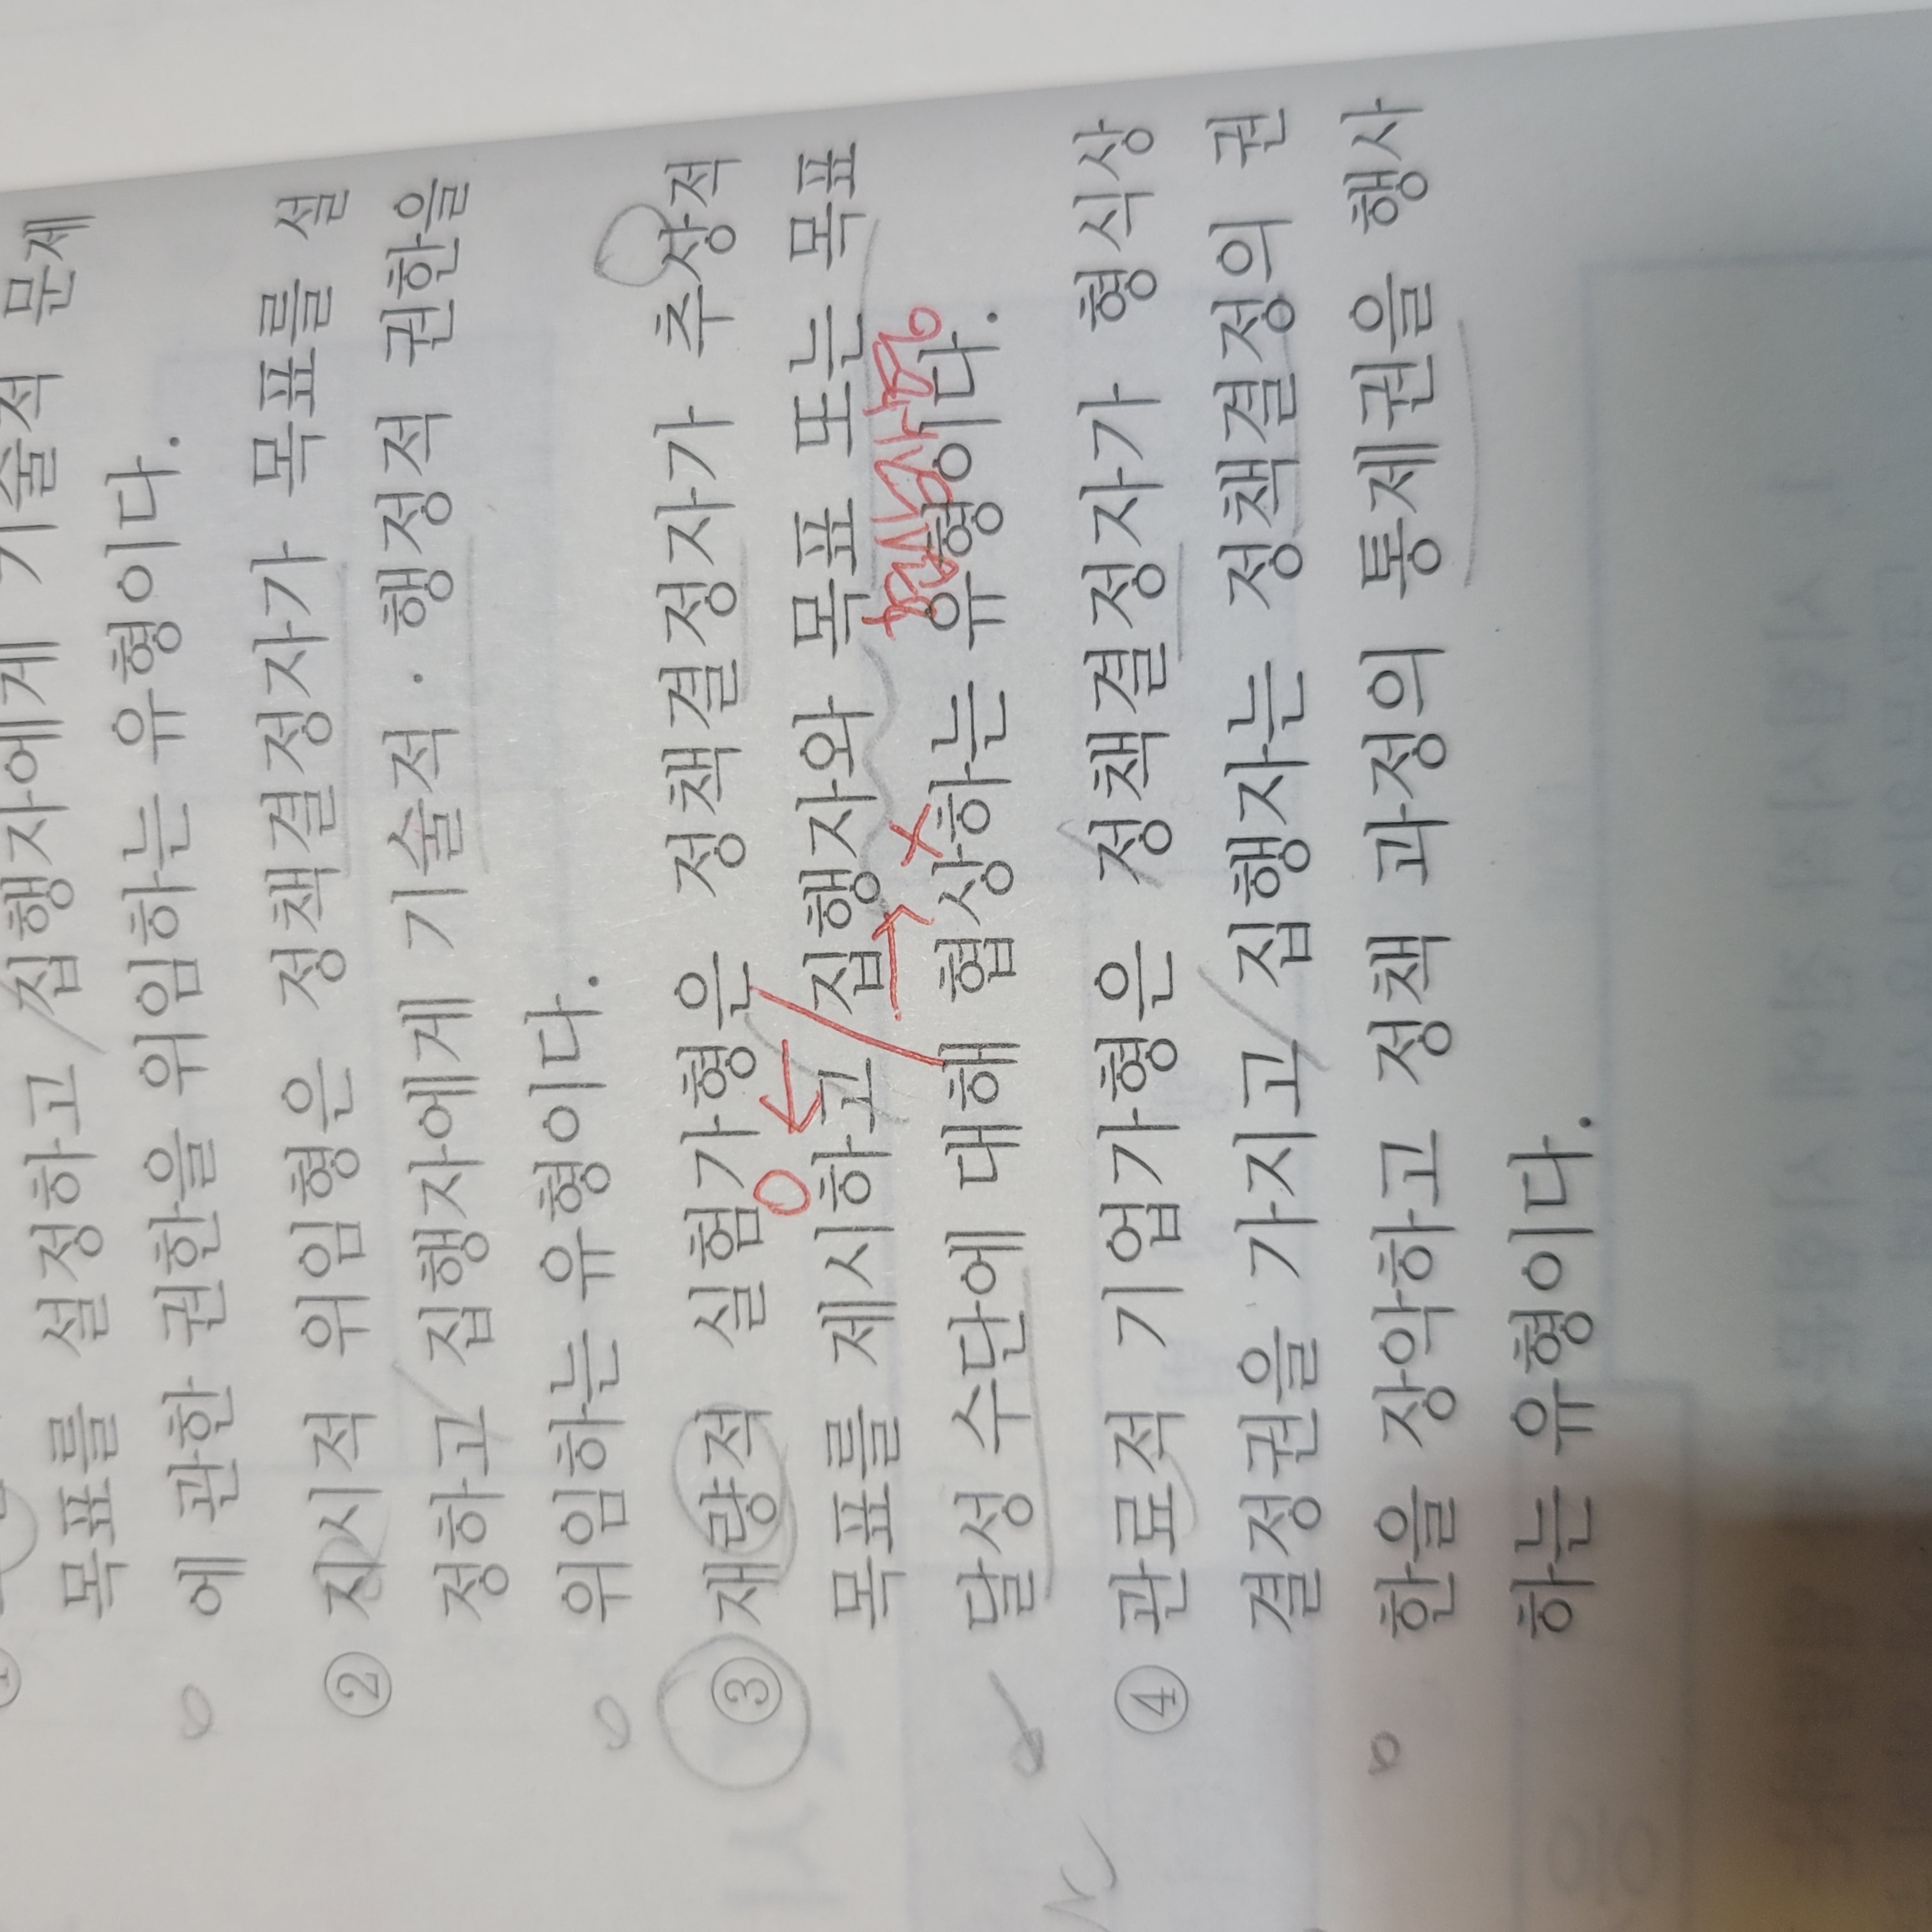 집행자에게 기술적 문제
목표를 설정하고 집행자에게 기술적 문제
에 관한 권한을 위임하는 유형이다.
② 지시적 위임형은 정책결정자가 목표를 설
정하고 집행자에게 기술적·행정적 권한을
위임하는 유형이다.
③ 재량적 실험가형은 정책결정자가 추상적
목표를 제시하고 집행자와 목표 또는 목표
달성 수단에 대해 협상하는 유형이다.
④ 관료적 기업가형은 정책결정자가 형식상
결정권을 가지고 집행자는 정책결정의 권
한을 장악하고 정책 과정의 통제권을 행사
하는 유형이다.